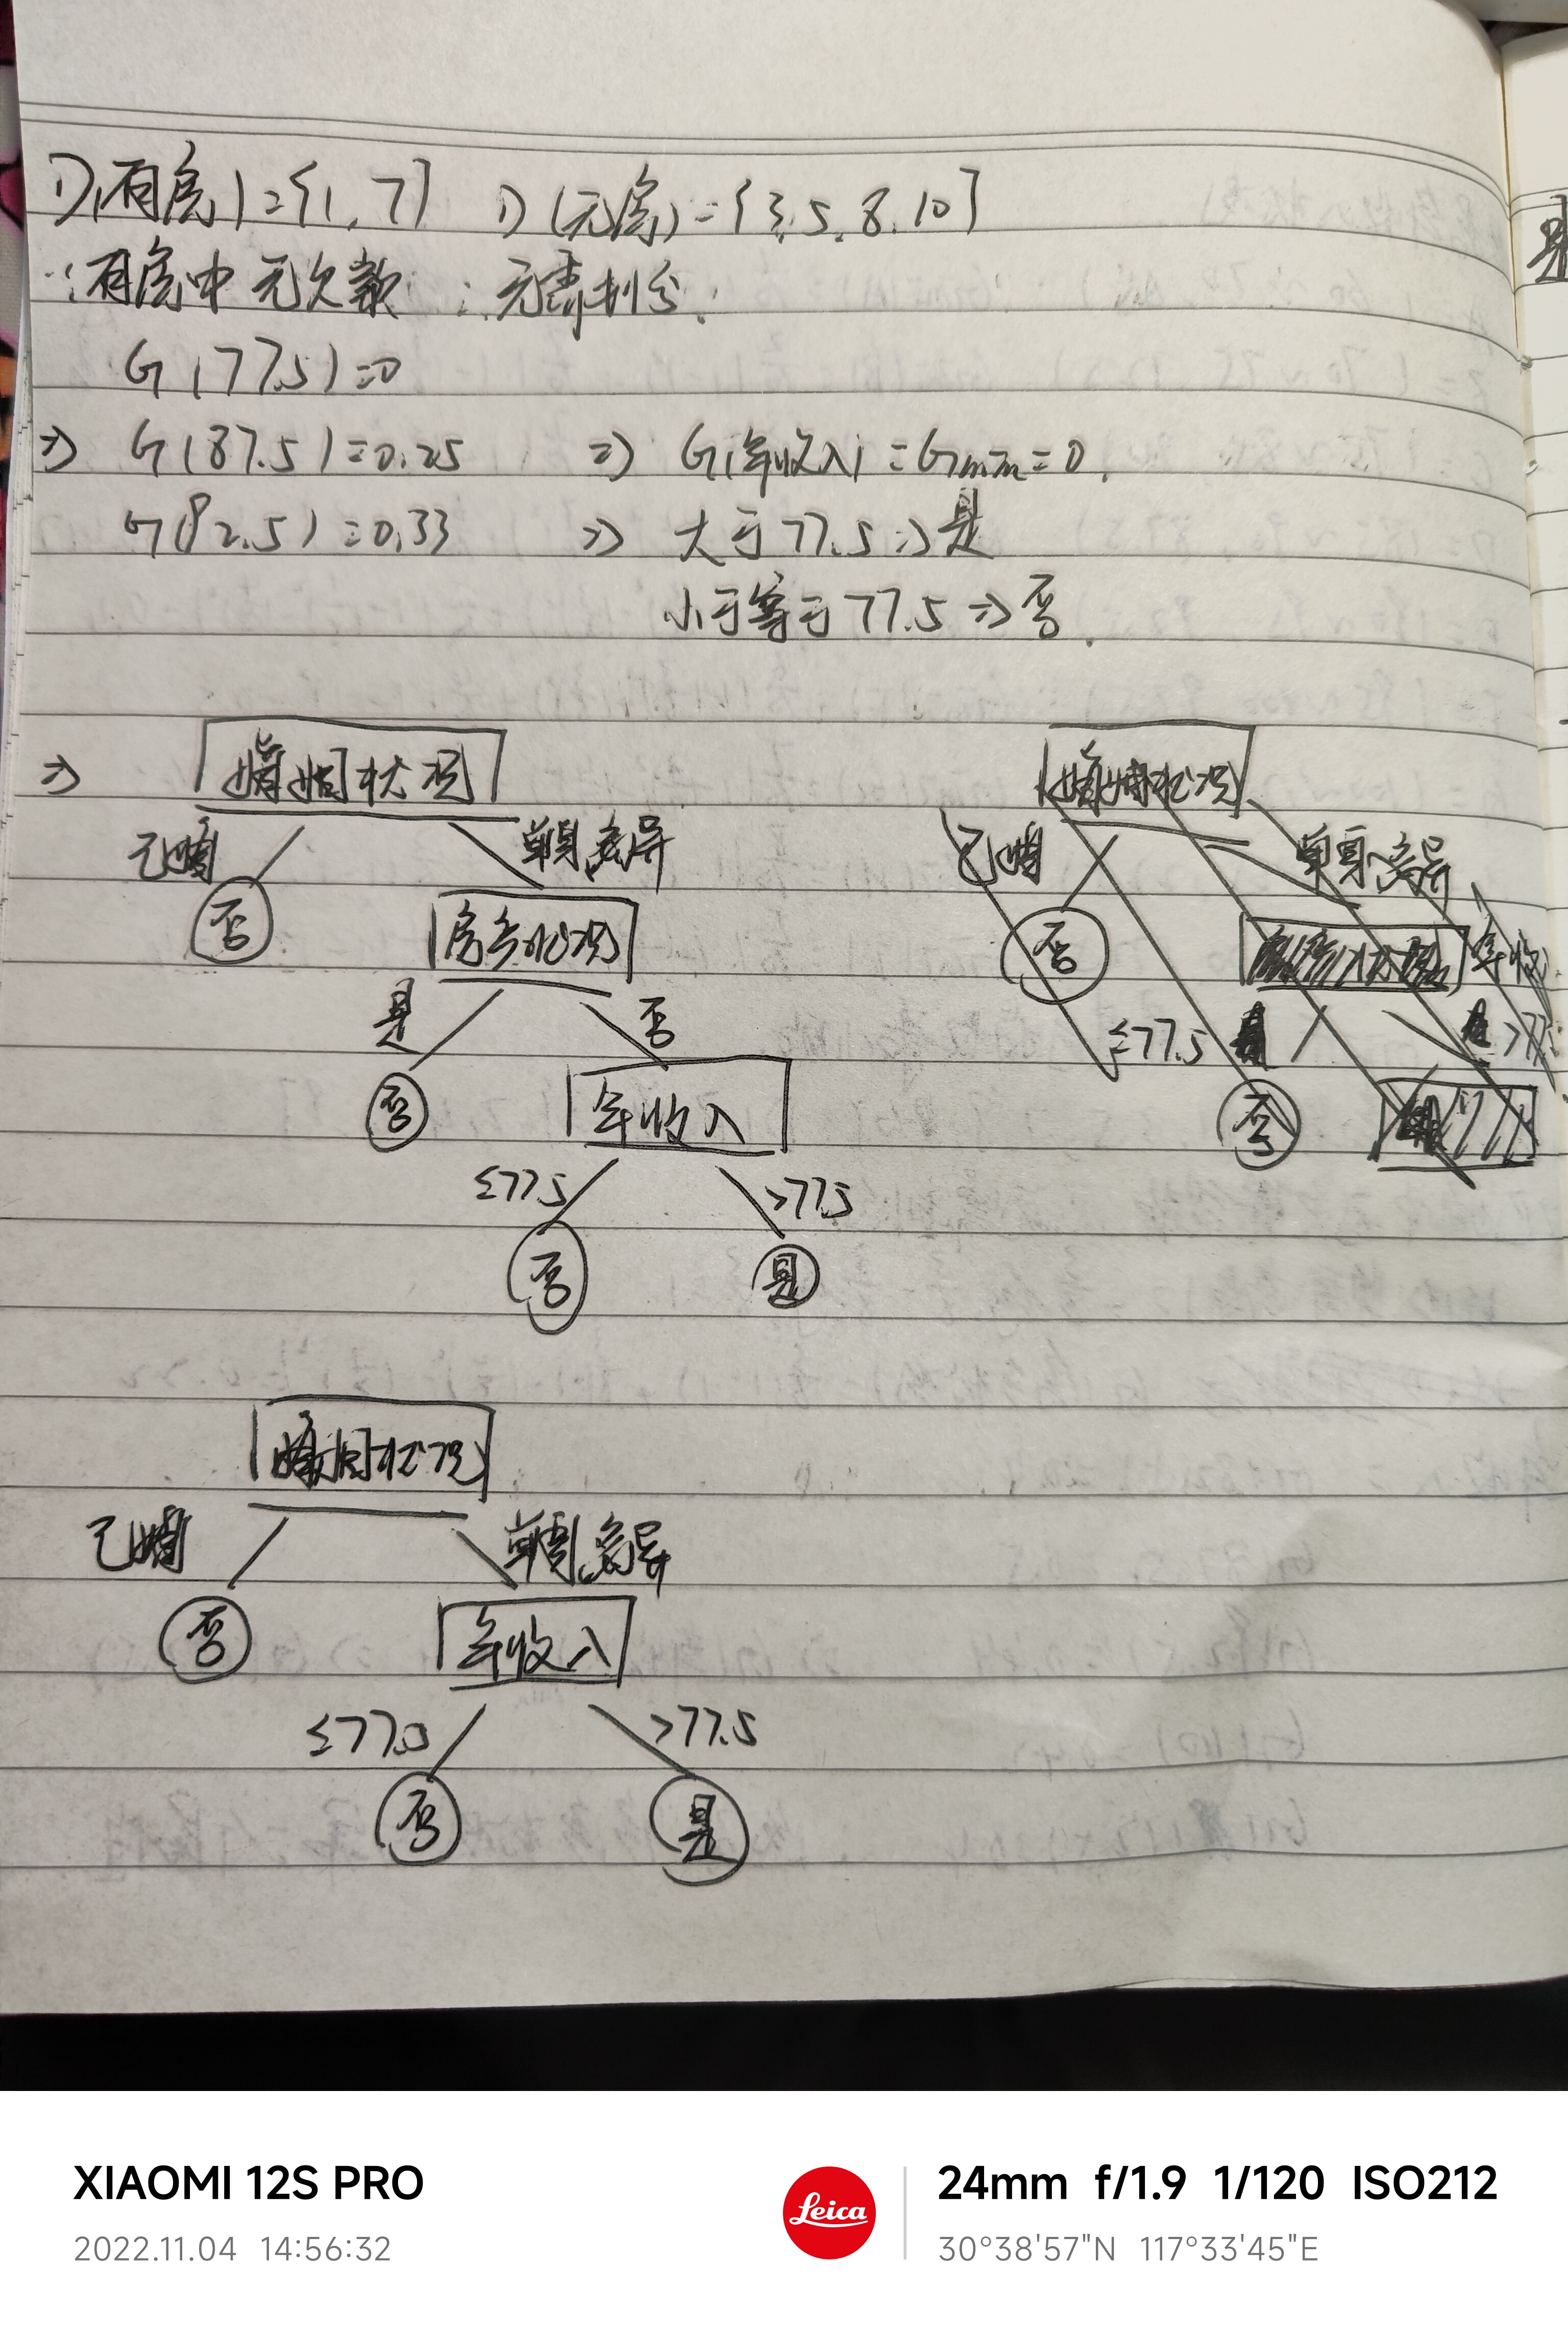 D(有房)={1,7} D(无房)={3.5.8.10}
∵有房中无欠款 ∴无需划分.
G(77.5)=0
⇒ G(87.5)=0.25 ⇒ G(年收入)=Gmin=0.
G(82.5)=0.33 ⇒ 大于77.5⇒是
小于等于77.5⇒否.
⇒ 婚姻状况 婚姻状况
已婚 单身,离异 已婚 单身、离异
否 房产状况 否 年收
是 否 ≤77.5 >77.
否 年收入 否
≤77.5 >77.5
否 是
婚姻状况
已婚 单身,离异
否 年收入
≤77.5 >77.5
否 是
XIAOMI 12S PRO
2022.11.04 14:56:32
Leica
24mm f/1.9 1/120 ISO212
30°38'57"N 117°33'45"E